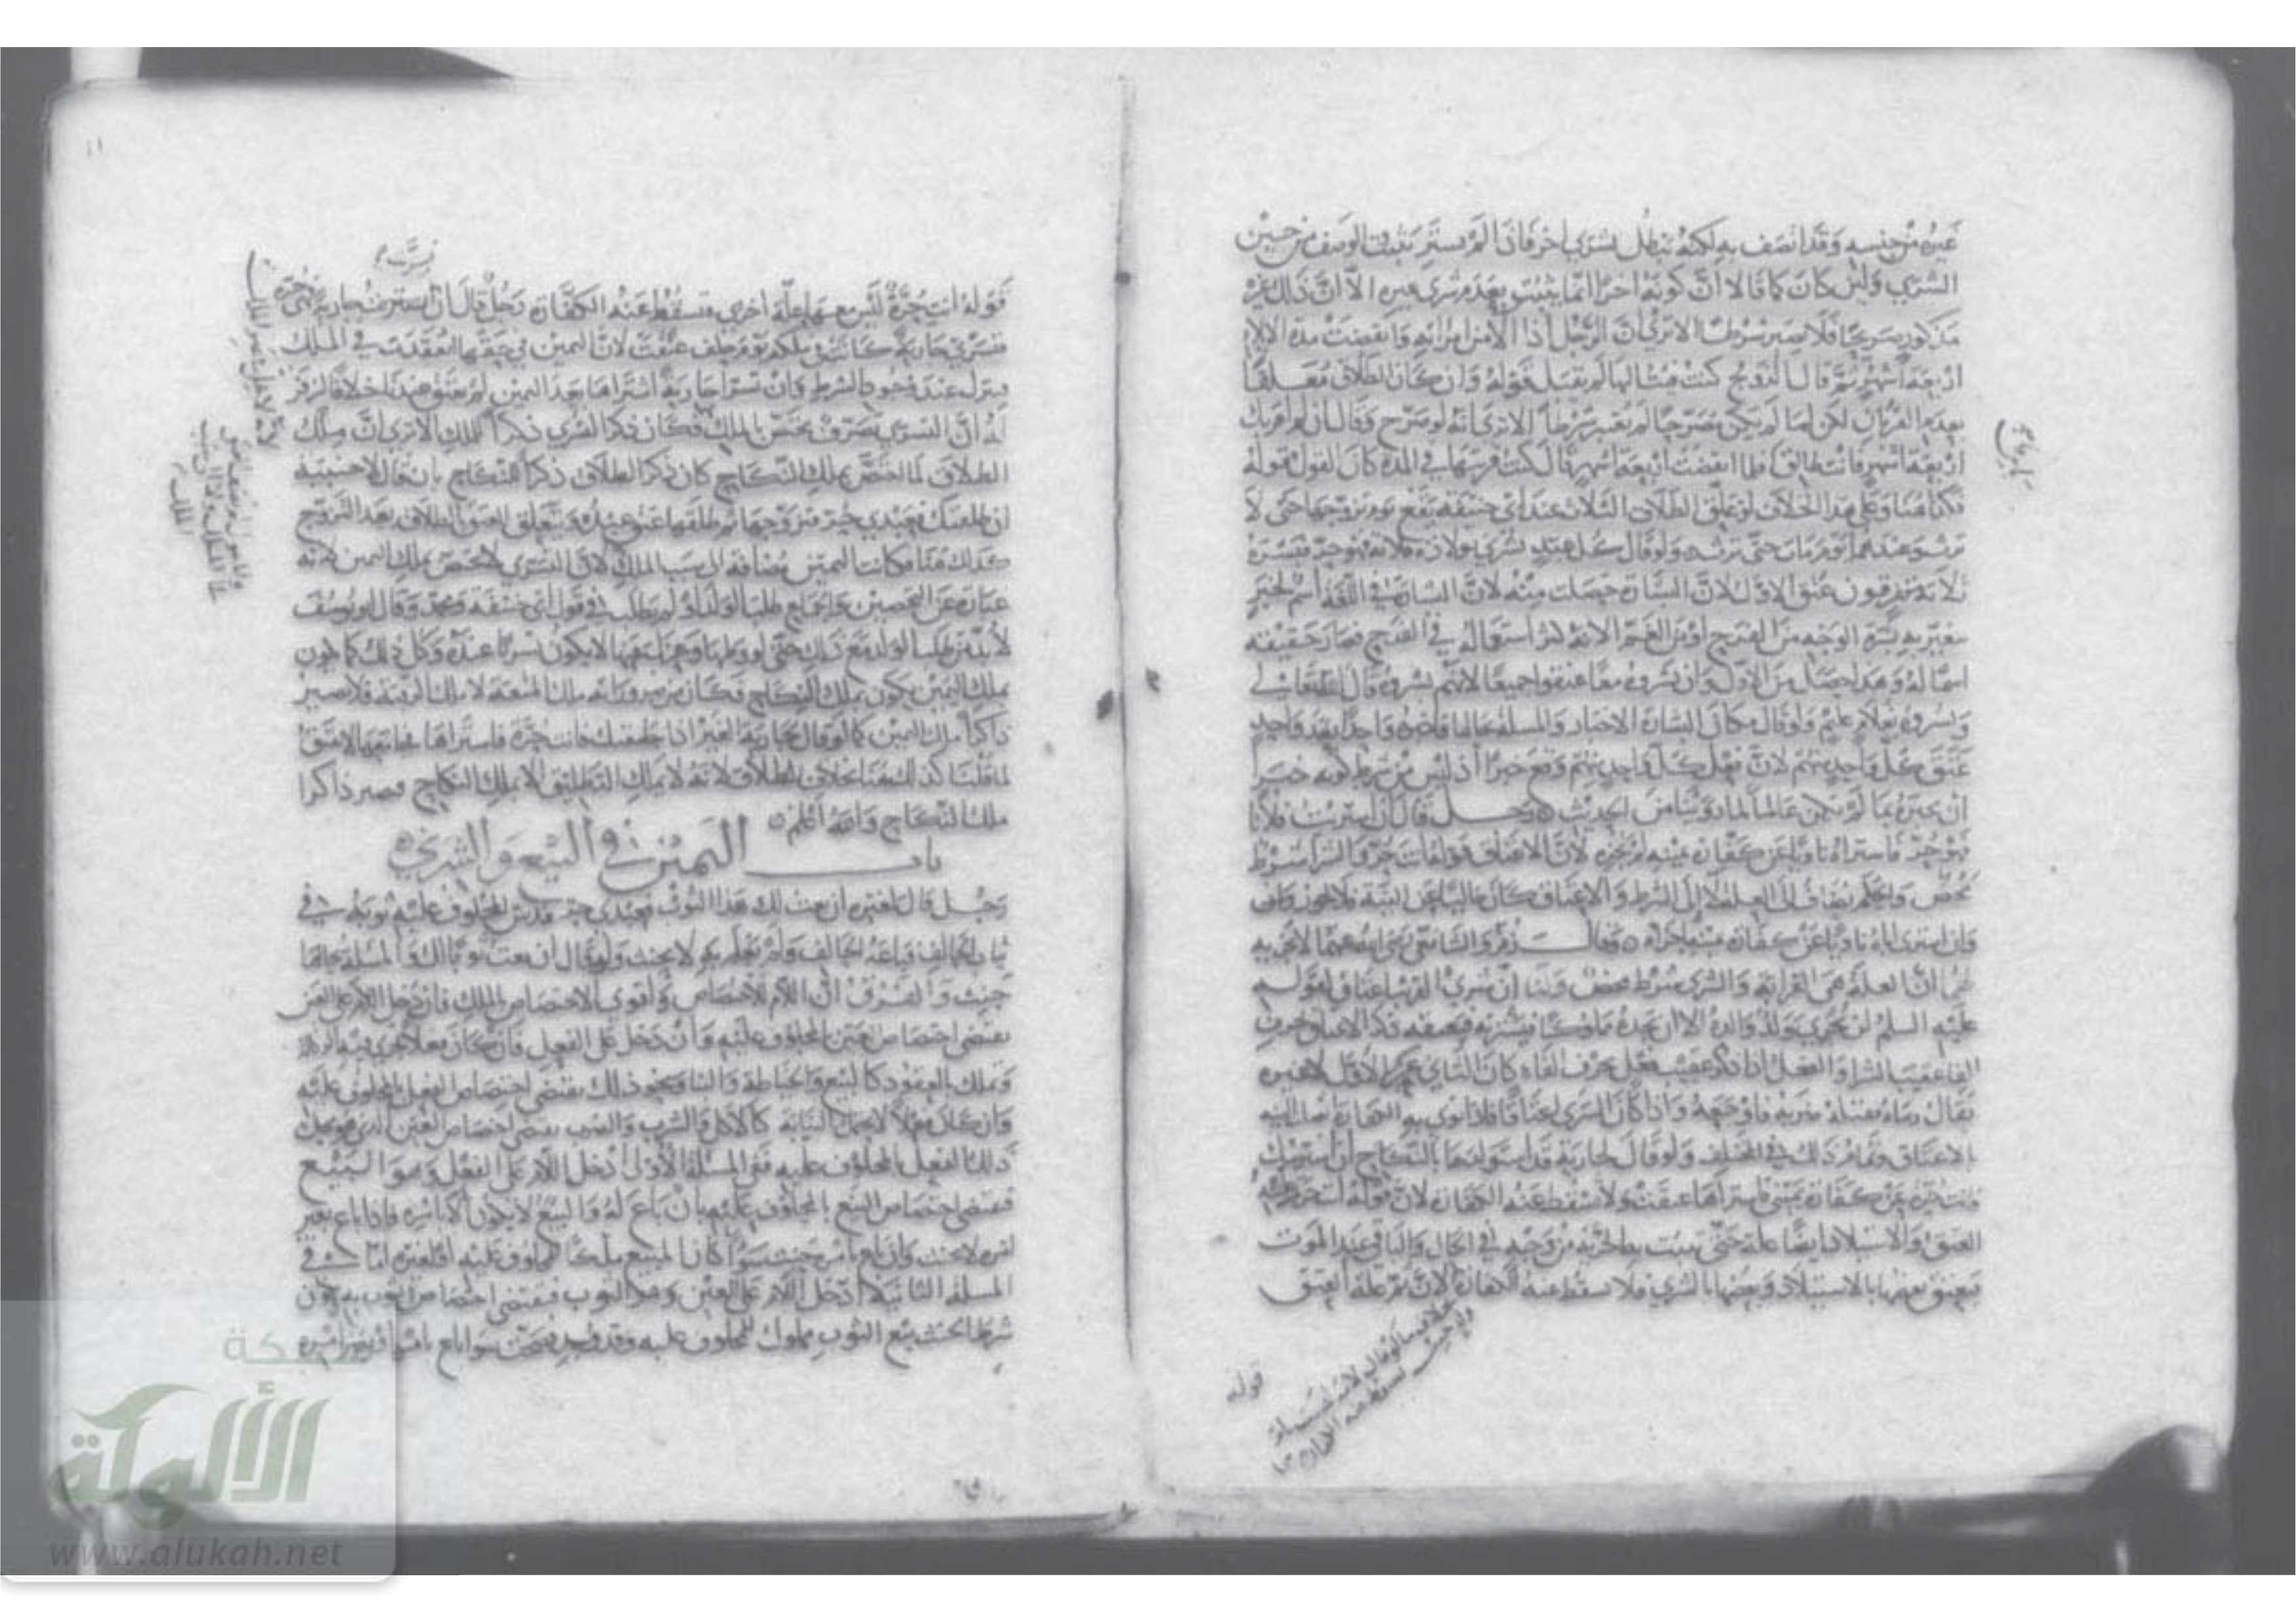 غيره من جنسه وقد اتصف به لكنه يبطل بشرى اخر فاذا لم يستر يثبت الوصف من حين
الشرى ولئن كان كما قالا ان كونه اخرا انما يثبت بعدم شرى غيره الا ان ذلك غير
مذكور صريحا فلا يصير شرطا الا ترى ان الرجل اذا الا من امراته وانقضت مدة الايلا
اربعة اشهر ثم قال الزوج كنت فئت اليها لم يقبل قوله وان كان الطلاق معلقا
بعدم القربان لكن لما لم يكن مصرحا لم يعتبر شرطا الا ترى انه لو صرح وقال ان لم اقربك
اربعة اشهر فانت طالق فلما انقضت اربعة اشهر قال كنت قربتها في المدة كان القول قوله
فكذا هنا وعلى هذا الخلاف لو علق الطلاق الثلاث عند ابى حنيفة يقع يوم تزوجها حتى لا
ترث وعندهما يوم مات حتى ترثه ولو قال كل عبد بشرني بولادة فلانة فهو حر فبشره
ثلاثة متفرقون عتق الاول لان البشارة حصلت منه لان البشارة في اللغة اسم لخبر
يتغير به بشرة الوجه من الفرح او من الغم الا انه كثر استعماله في الفرح فصار حقيقة
اسما له وهذا حصل من الاول وان بشروه معا عتقوا جميعا لانهم بشروه قال الله تعالى
وبشروه بغلام عليم ولو قال مكان البشارة الاخبار والمسلة بحالها فاخبروه واحدا بعد واحد
عتق كل واحد منهم لان فعل كل واحد منهم وقع خبرا اذ ليس من شرط كونه خبرا
ان يخبره بما لم يكن عالما لما روينا من الحديث رجل قال ان اشتريت فلانا
فهو حر فاشتراه ناويا عن كفارة يمينه لم يجزه لان الاعتاق قوله انت حر والشرا شرط
محض والحكم يضاف الى العلة لا الى الشرط والاعتاق كان خاليا عن النية فلا يجوز وان
وان اشترى اباه ناويا عن كفارة يمينه اجزاه وقال زفر والشافعي رحمهما الله لا يجزيه
لان العلة هي القرابة والشرى شرط محض ولنا ان شرى القريب اعتاق لقوله
عليه السلم لن يجزي ولد والده الا ان يجده مملوكا فيشتريه فيعتقه ذكر الاعتاق بحرف
الفا عقيب الشرا والفعل اذا ذكر عقيب فعل بحرف الفاء كان الثاني حكم الاول لا غيره
يقال رماه فقتله ضربه فاوجعه واذا كان الشرى اعتاقا فاذا نوى به الكفارة انصرف اليه
الاعتاق وتمام ذلك في المختلف ولو قال لجارية قد استولدها بالنكاح ان اشتريتك
فانت حرة عن كفارة يميني فاشتراها عتقت ولا تسقط عنه الكفارة لان قوله انت حرة علة
العتق والاستيلاد ايضا علة حتى يثبت به الحرية من وجه في الحال والباقي عند الموت
فيعتق بعضها بالاستيلاد وبعضها بالشرى فلا تسقط عنه الكفارة لان تمام علة العتق
قوله
قوله انت حرة ليس معها علة اخرى فتسقط عنه الكفارة رجل قال ان تسريت جارية فهي حرة
فتسرى جارية كانت في ملكه يوم حلف عتقت لان اليمين في حقها انعقدت في الملك
فينزل عند وجود الشرط وان تسرا جارية اشتراها بعد اليمين لم تعتق عندنا خلافا لزفر
له ان التسري تصرف يختص بالملك فكان ذكر التسري ذكرا للملك الا ترى ان ملك
الطلاق لما اختص بملك النكاح كان ذكر الطلاق ذكرا للنكاح بان قال لاجنبية
ان طلقتك فعبدي حر فتزوجها ثم طلقها عتق عبده ويتعلق العتق بالطلاق بعد التزوج
كذلك هنا فكانت اليمين مضافة الى سبب الملك لان التسرى لا يختص بملك اليمين لانه
عبارة عن التحصين والجماع طلب الولد او لم يطلب في قول ابى حنيفة ومحمد وقال ابو يوسف
لا بد من طلب الولد مع ذلك حتى لو وطئها وعزل عنها لا يكون تسريا عنده وكل ذلك كما يكون
بملك اليمين يكون بملك النكاح فكان من ضرورته ملك المتعة لا ملك الرقبة فلا يصير
ذاكرا ملك اليمين كما لو قال لجارية الغير اذا جامعتك فانت حرة فاشتراها فجامعها لا تعتق
لما قلنا كذلك هنا بخلاف الطلاق لانه لا يملك التطليق الا بملك النكاح فصير ذاكرا
ملك النكاح والله اعلم
باب اليمين في البيع والشرى
رجل قال لغيره ان بعت لك هذا الثوب فعبدي حر فدس المحلوف عليه ثوبه في
ثياب الحالف فباعه الحالف ولم يعلم به لا يحنث ولو قال ان بعت ثوبا لك والمسلة بحالها
حنث والفرق ان اللام للاختصاص واقوى الاختصاص الملك فان دخل اللام على العين
يقتضي اختصاص العين بالمحلوف عليه وان دخل على الفعل فان كان فعلا يجري فيه النيابة
ويملك بالعقود كالبيع والخياطة والبنا ونحو ذلك يقتضي اختصاص الفعل بالمحلوف عليه
وان كان فعلا لا يحتمل النيابة كالاكل والشرب والضرب يقتضي اختصاص العين الذي هو محل
ذلك الفعل بالمحلوف عليه ففي المسلة الاولى ادخل اللام على الفعل وهو البيع
فيقتضي اختصاص البيع بالمحلوف عليه بان باع له والبيع له لا يكون الا بامره فاذا باع بغير
امره لا يحنث وان باع بامره حنث سوا كان المبيع ملكا للمحلوف عليه او لغيره اما في
المسلة الثانية ادخل اللام على العين وهو الثوب فيقتضي اختصاص الثوب به فيكون
شرط الحنث بيع الثوب مملوك للمحلوف عليه وقد وجد فيحنث سوا باع بامره او بغير امره
الألوكة
www.alukah.net